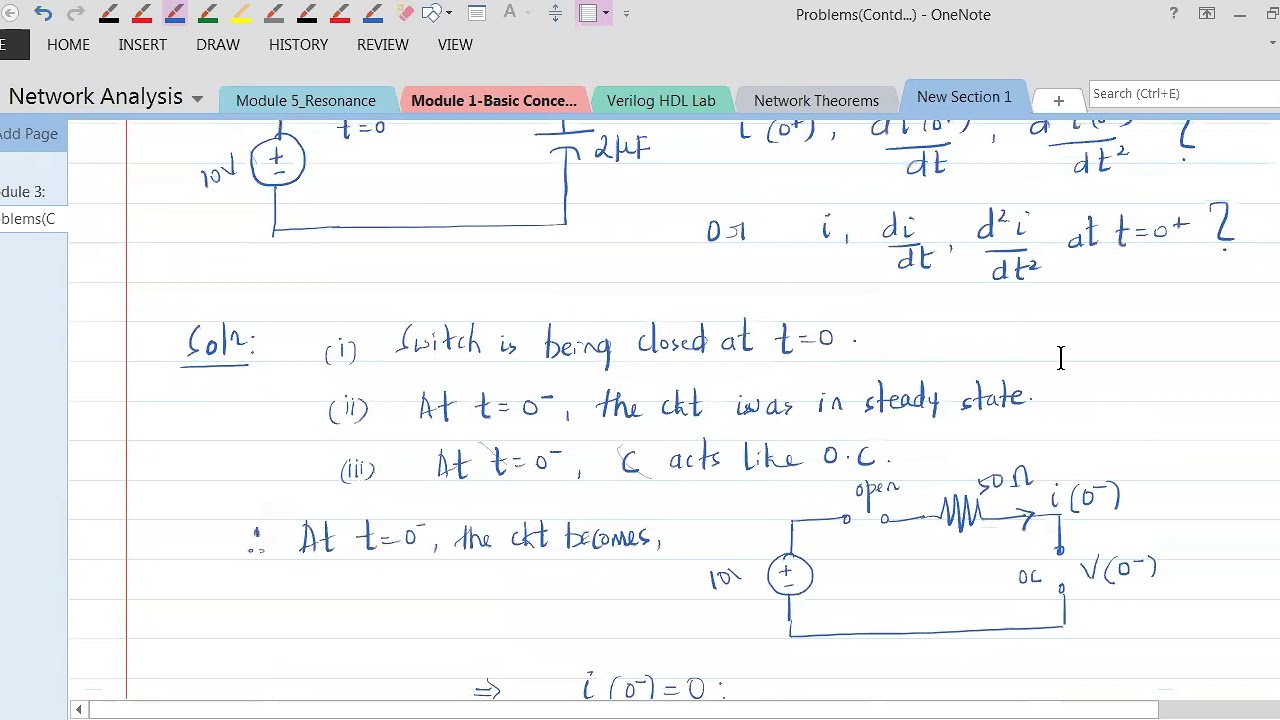 Problems(Contd...) - OneNote
HOME INSERT DRAW HISTORY REVIEW VIEW
Network Analysis Module 5_Resonance Module 1-Basic Conce... Verilog HDL Lab Network Theorems New Section 1 Search (Ctrl+E)
Add Page
dule 3:
blems(C
t=0
10V + - 2μF
i(0+), di(0+)/dt, d²i(0+)/dt² ?
or i, di/dt, d²i/dt² at t=0+ ?
Soln: (i) Switch is being closed at t=0.
(ii) At t=0-, the ckt was in steady state.
(iii) At t=0-, C acts like O.C.
open 50Ω i(0-)
∴ At t=0-, the ckt becomes,
10V + - OC V(0-)
⇒ i(0-)=0;